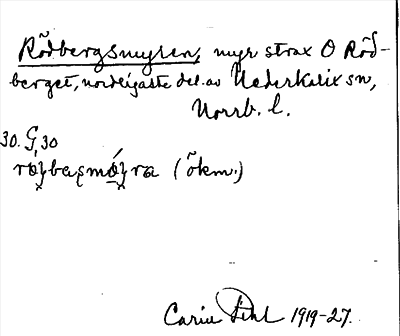 Rödbergsmyren, myr strax O Röd-
berget, nordligaste del. av Nederkalix sn,
Norrb. l.
30. G, 30
(ökm.)
Carin Pihl 1919-27.